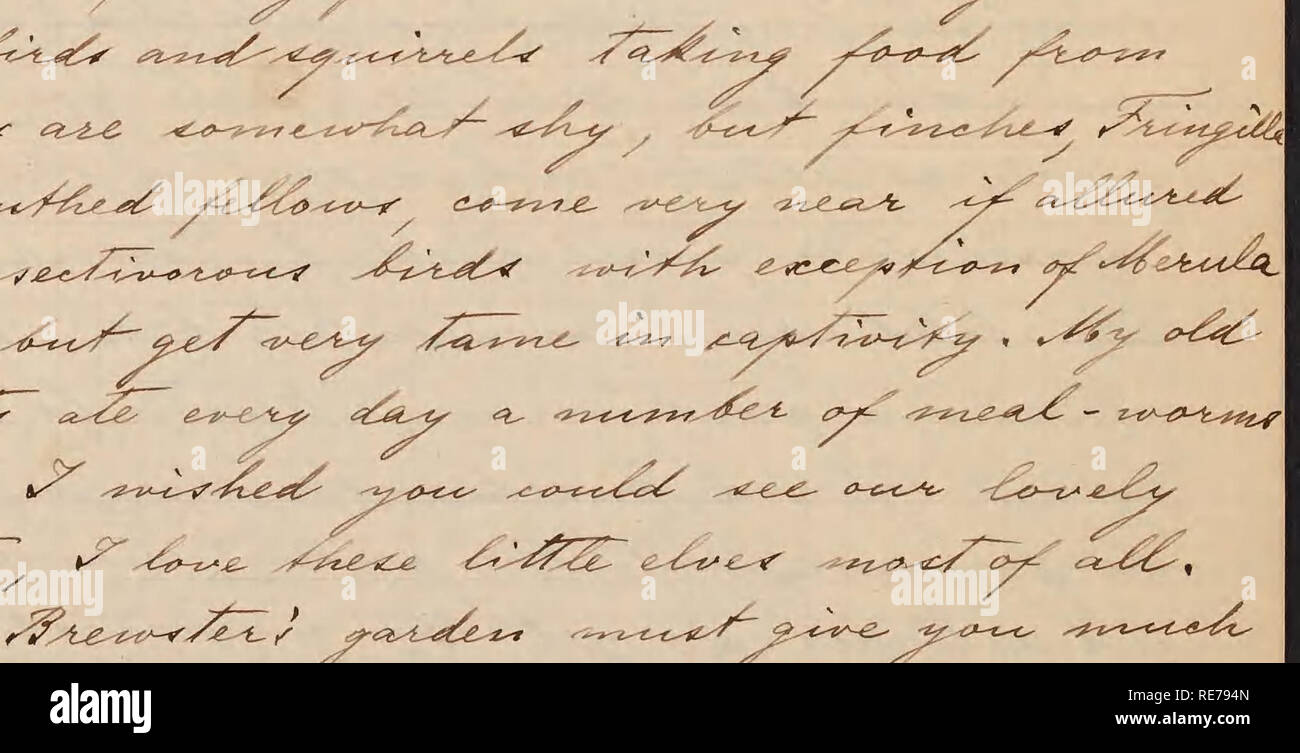 birds and squirrels taking food from
are somewhat shy, but finches, Fringilla
fellows, come very near if allured
sectivorous birds with exception of Merula
but get very tame in captivity. My old
ate every day a number of meal-worms
I wished you could see our lovely
, I love these little elves most of all.
Brewster's garden must give you much
a alamy
alamy
Image ID: RE794N
www.alamy.com